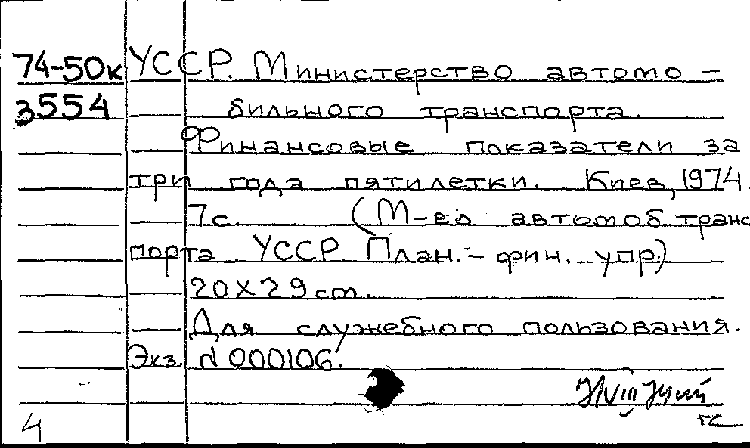 74-50к УССР. Министерство автомо-
3554 бильного транспорта.
Финансовые показатели за
три года пятилетки. Киев, 1974.
7с. (М-во автомоб. транс
порта УССР. План.-фин. упр.)
20х29 cm.
Для служебного пользования.
Экз. N 000106.
4